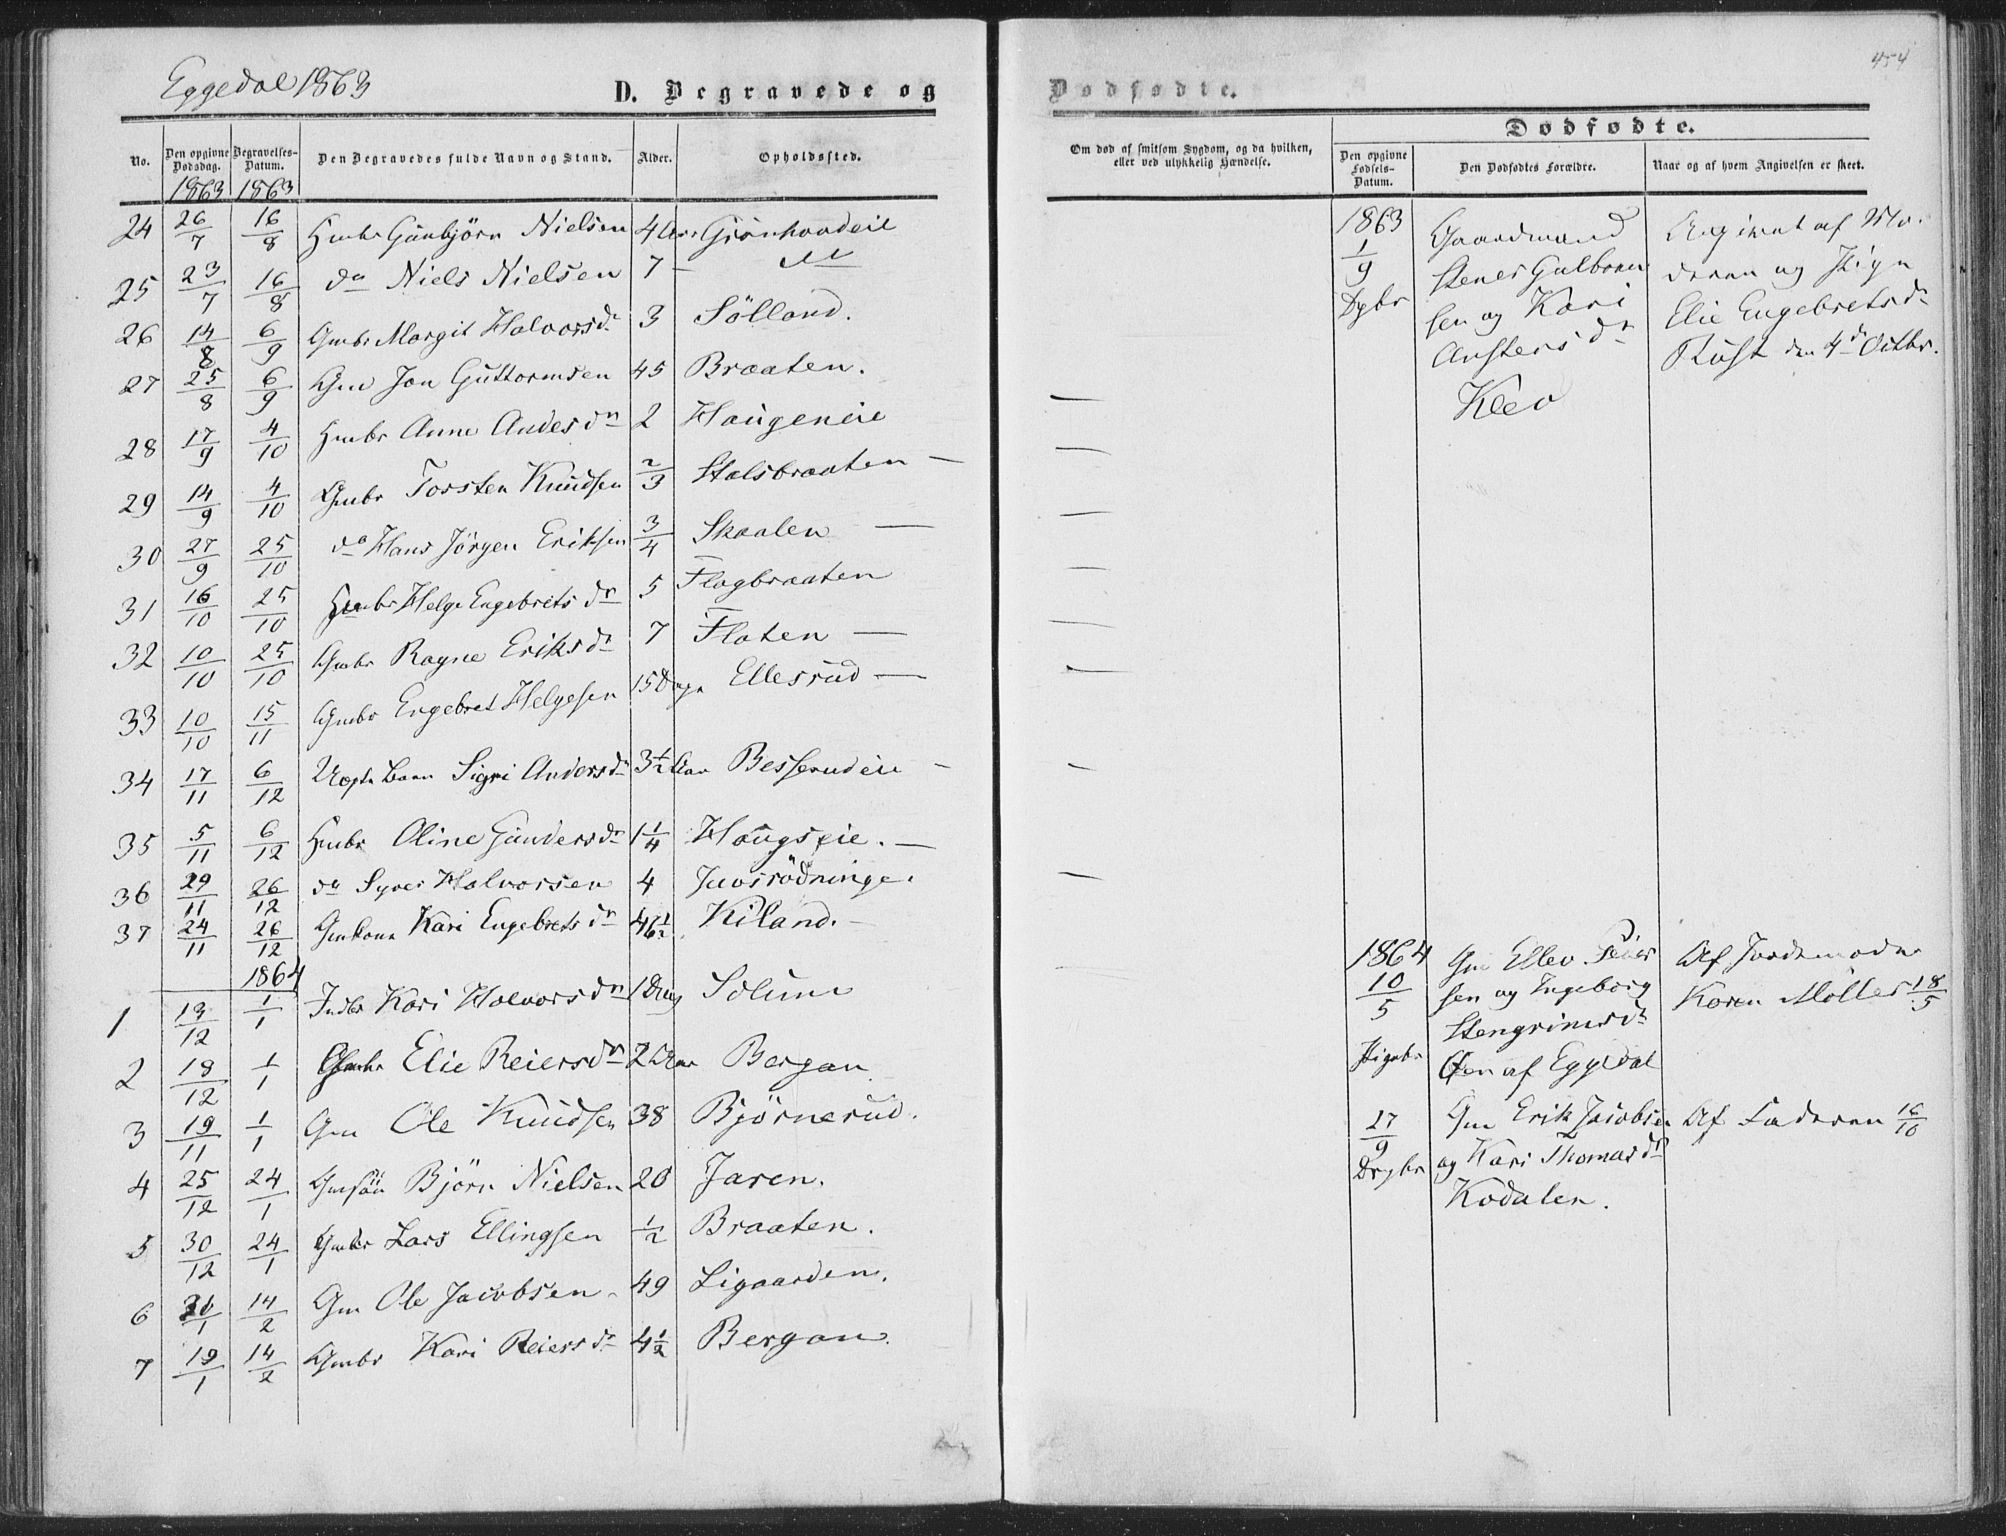 Eggedal 1863
D. Begravede og
No. Den opgivne Dødsdag. Begravelses-Datum. Den Begravedes fulde Navn og Stand. Alder. Opholdssted.
1863 1863
24 26/7 16/8 Hmbr Gunbjörn Nielsen 4 Grönhovdeie
25 23/7 16/8 do Niels Nielsen 7 -
26 14/8 6/9 Gmbr Margit Halvorsdr 3 Sölland.
27 25/8 6/9 Gm Jon Guttormsen 45 Braaten.
28 17/9 4/10 Hmbr Anne Andersdr 2 Haugeneie
29 14/9 4/10 Gmbr Torsten Knudsen 2/3 Stalsbraaten —
30 27/9 25/10 do Hans Jörgen Eriksen 3/4 Skaalen —
31 16/10 25/10 Hmbr Helge Engebretsdr 5 Flagbraaten
32 10/10 25/10 Gmbr Ragne Eriksdr 7 Flaten —
33 10/10 15/11 Gmbr Engebret Helgesen 15 Dage Ellesrud —
34 17/11 6/12 Uægte Barn Sigri Andersdr 3½ Aar Besserudeie -
35 5/11 6/12 Hmbr Oline Gundersdr 1¼ Haugseie. —
36 29/11 26/12 do Syver Halvorsen 4 Juvsrödninge.
37 24/11 26/12 Gmkone Kari Engebretsdr 46½ Kiland. —
1864
1 13/12 1/1 Indbr Kari Halvorsdr 1 Dag Solum
2 18/12 1/1 Gmbr Elie Reiersdr 2 Aar Bergan
3 19/11 1/1 Gm Ole Knudsen 38 Björnerud.
4 25/12 24/1 Gmsön Björn Nielsen 20 Jaren.
5 30/12 24/1 Gmbr Lars Ellingsen 1/2 Braaten.
6 1 14/2 Gm Ole Jacobsen 49 Ligaarden.
7 19/1 14/2 Gmbr Kari Reiersdr 4½ Bergan.
Dødfødte.
454
Dødfødte.
Om død af smitsom Sygdom, og da hvilken, eller ved ulykkelig Hændelse. Den opgivne Fødsels-Datum. Den Dødfødtes Forældre. Naar og af hvem Angivelsen er skeet.
1863 Gaardmand Angivet af Mo-
1/9 Stener Gulbran deren og Pige
Dgbr sen og Kari Elie Engebretsdr
Anstensdr Rust den 4d Octbr.
Klev
1864 Gm Ellev Peder Af Jordemoder
10/5 sen og Ingeborg Karen Möller 18/5
Stengrimsdr
Pigebr Öen af Eggedal
27/9 Gm Erik Jacobsen Af Faderen 16/10
Drgbr og Kari Thomasdr
Kodalen.